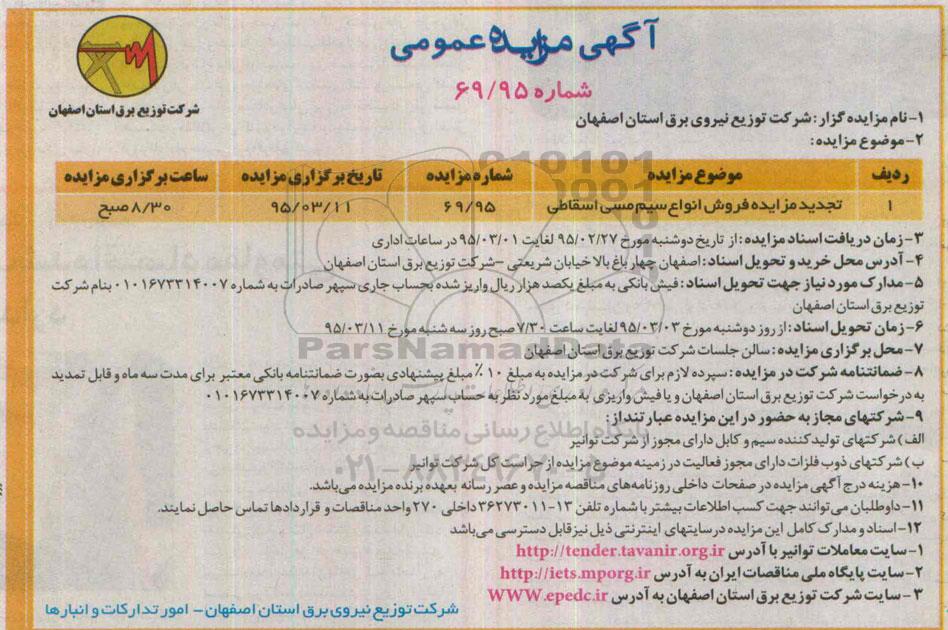 آگهی مزایده عمومی
شماره ۶۹/۹۵
شرکت توزیع برق استان اصفهان
۱- نام مزایده گزار: شرکت توزیع نیروی برق استان اصفهان
۲- موضوع مزایده:
ردیف موضوع مزایده شماره مزایده تاریخ برگزاری مزایده ساعت برگزاری مزایده
۱ تجدید مزایده فروش انواع سیم مسی اسقاطی ۶۹/۹۵ ۹۵/۰۳/۱۱ ۸/۳۰ صبح
۳- زمان دریافت اسناد مزایده: از تاریخ دوشنبه مورخ ۹۵/۰۲/۲۷ لغایت ۹۵/۰۳/۰۱ در ساعات اداری
۴- آدرس محل خرید و تحویل اسناد: اصفهان چهار باغ بالا خیابان شریعتی - شرکت توزیع برق استان اصفهان
۵- مدارک مورد نیاز جهت تحویل اسناد: فیش بانکی به مبلغ یکصد هزار ریال واریز شده بحساب جاری سپهر صادرات به شماره ۰۱۰۱۶۷۳۳۱۴۰۰۷ بنام شرکت
توزیع برق استان اصفهان
۶- زمان تحویل اسناد: از روز دوشنبه مورخ ۹۵/۰۳/۰۳ لغایت ساعت ۷/۳۰ صبح روز سه شنبه مورخ ۹۵/۰۳/۱۱
۷- محل برگزاری مزایده: سالن جلسات شرکت توزیع برق استان اصفهان
۸- ضمانتنامه شرکت در مزایده: سپرده لازم برای شرکت در مزایده به مبلغ ۱۰٪ مبلغ پیشنهادی بصورت ضمانتنامه بانکی معتبر برای مدت سه ماه و قابل تمدید
به درخواست شرکت توزیع برق استان اصفهان و یا فیش واریزی به مبلغ مورد نظر به حساب سپهر صادرات به شماره ۰۱۰۱۶۷۳۳۱۴۰۰۷
۹- شرکتهای مجاز به حضور در این مزایده عبارتنداز:
الف) شرکتهای تولیدکننده سیم و کابل دارای مجوز از شرکت توانیر
ب) شرکتهای ذوب فلزات دارای مجوز فعالیت در زمینه موضوع مزایده از حراست کل شرکت توانیر
۱۰- هزینه درج آگهی مزایده در صفحات داخلی روزنامه‌های مناقصه مزایده و عصر رسانه بعهده برنده مزایده می‌باشد.
۱۱- داوطلبان می‌توانند جهت کسب اطلاعات بیشتر با شماره تلفن ۱۳-۳۶۲۷۳۰۱۱ داخلی ۲۷۰ واحد مناقصات و قراردادها تماس حاصل نمایند.
۱۲- اسناد و مدارک کامل این مزایده در سایتهای اینترنتی ذیل نیز قابل دسترسی می‌باشد
۱- سایت معاملات توانیر با آدرس http://tender.tavanir.org.ir
۲- سایت پایگاه ملی مناقصات ایران به آدرس http://iets.mporg.ir
۳- سایت شرکت توزیع برق استان اصفهان به آدرس WWW.epedc.ir
شرکت توزیع نیروی برق استان اصفهان - امور تدارکات و انبارها
ParsNamadData
پایگاه اطلاع رسانی مناقصه و مزایده